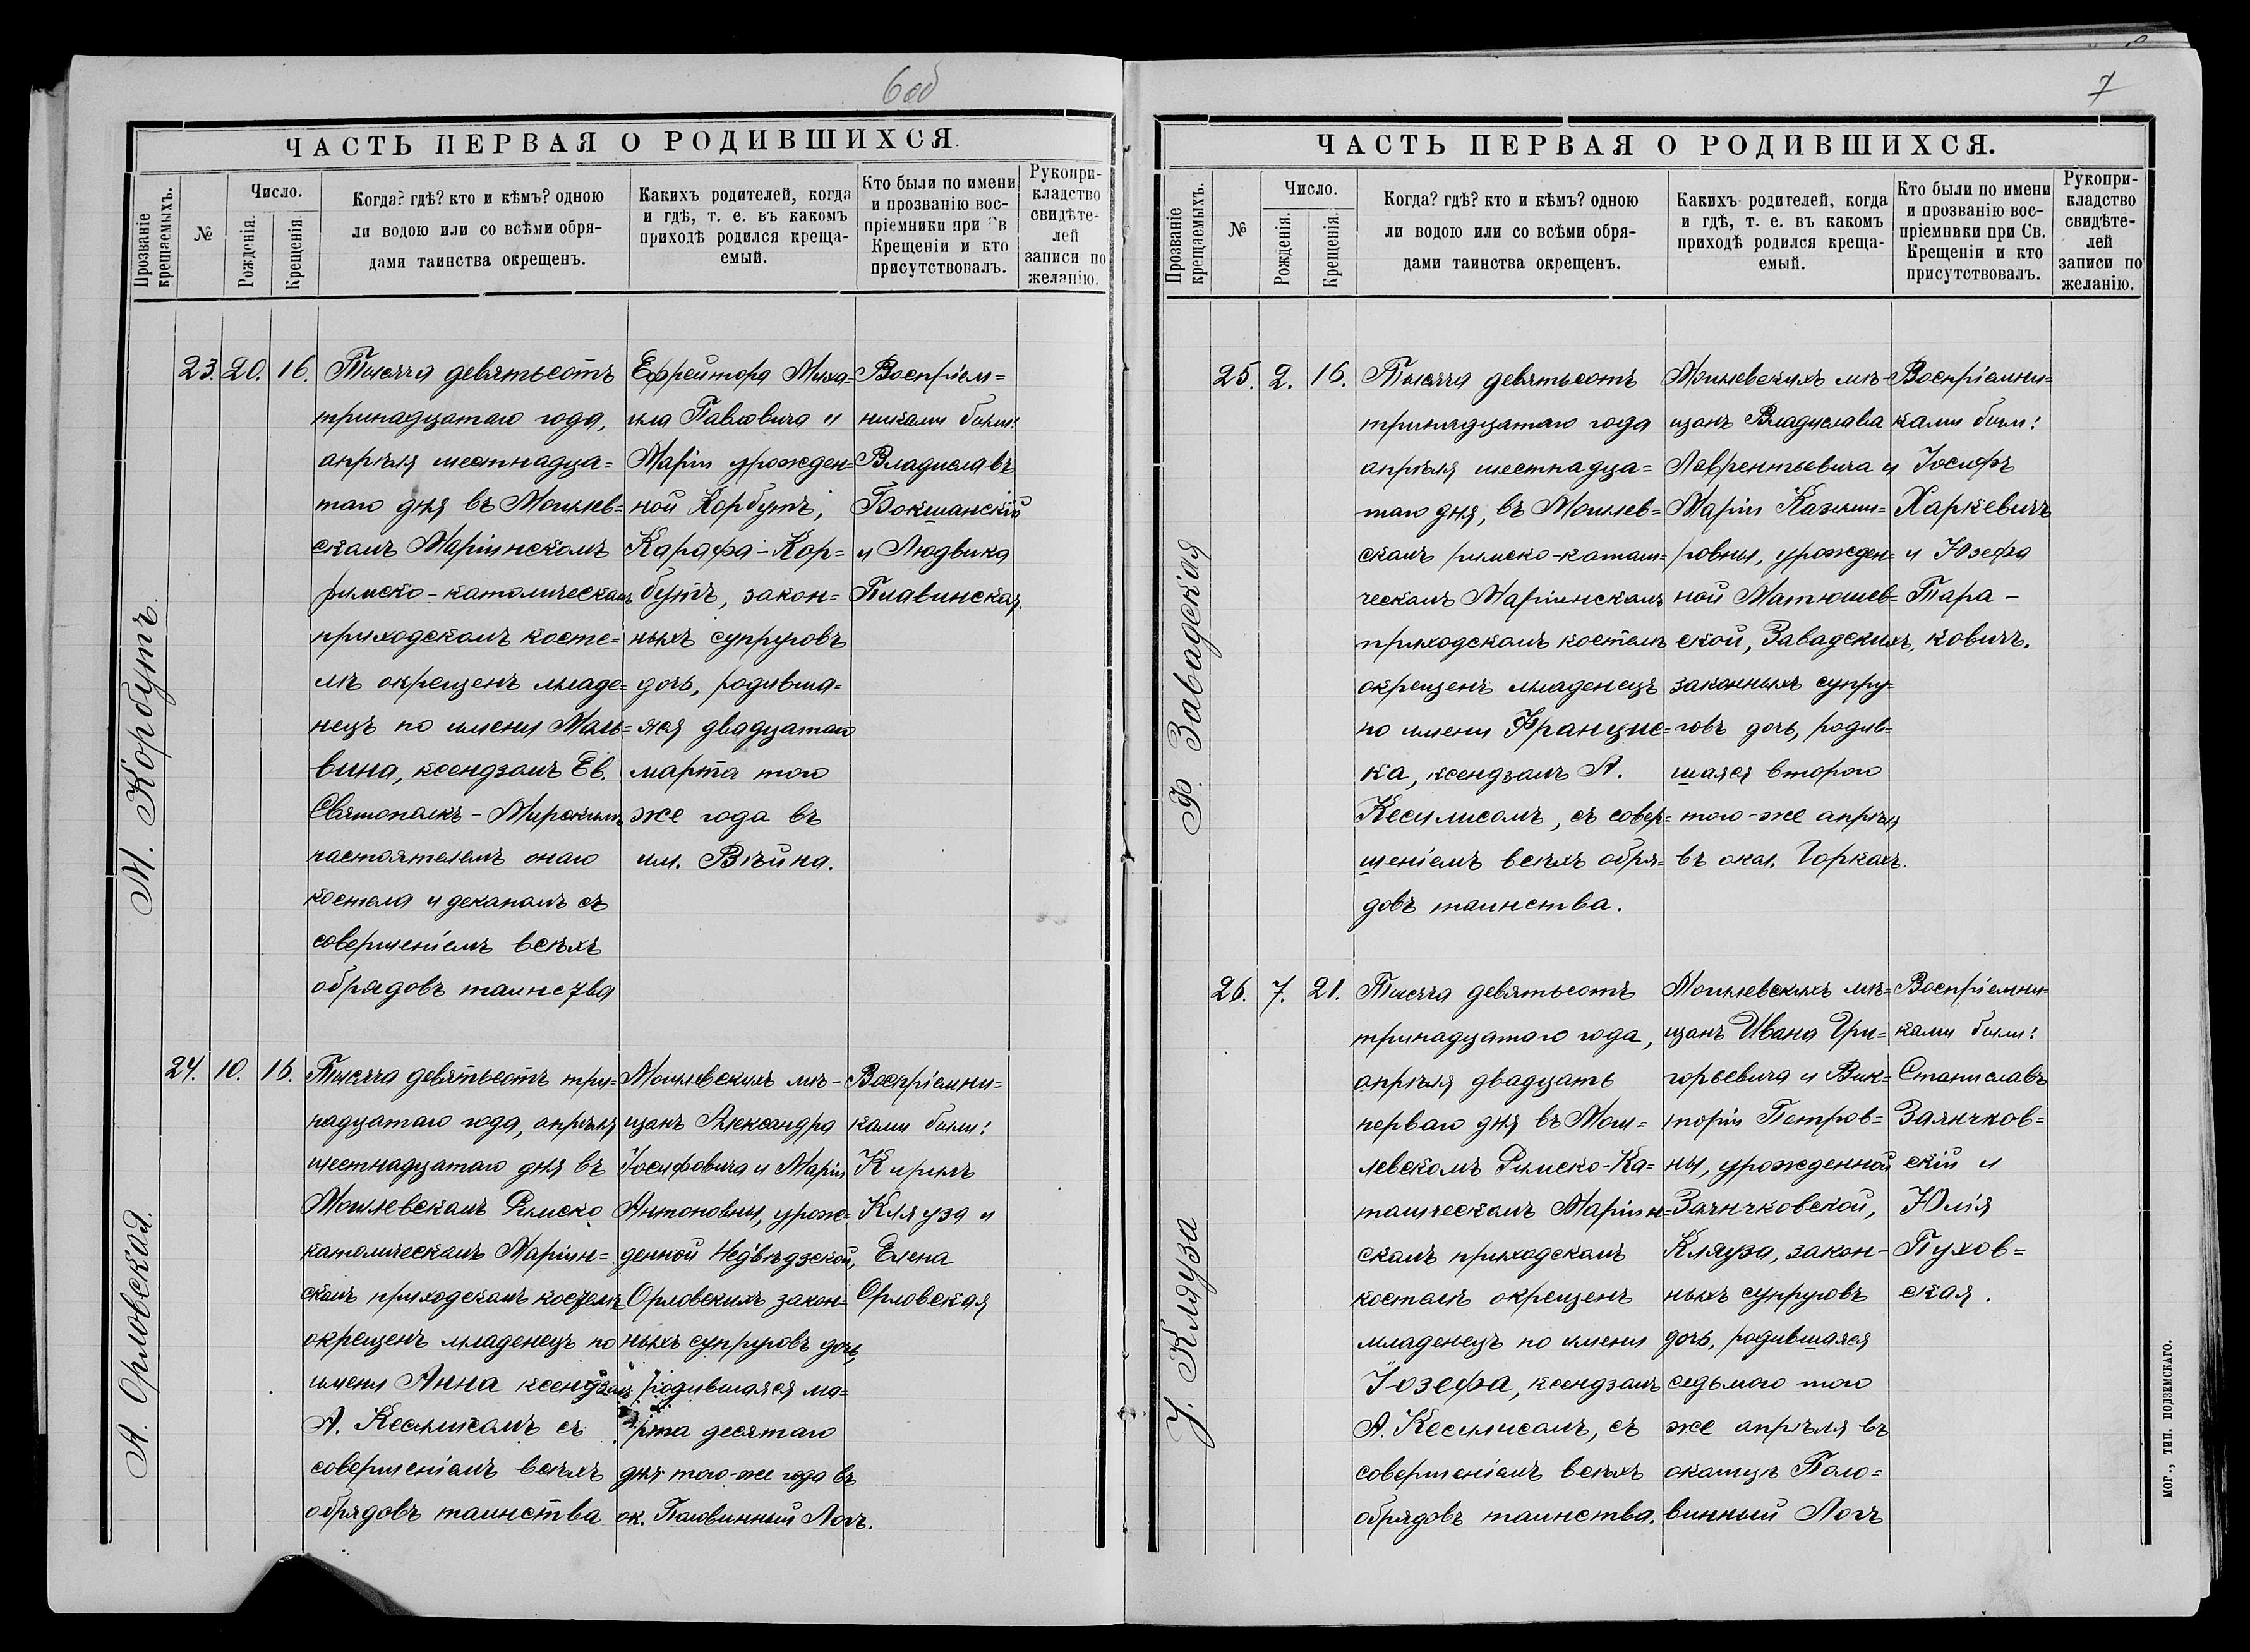 6 об
ЧАСТЬ ПЕРВАЯ О РОДИВШИХСЯ.
Прозваніе крещаемыхъ.
№
Число.
Рожденія.
Крещенія.
Когда? гдѣ? кто и кѣмъ? одною
ли водою или со всѣми обря-
дами таинства окрещенъ.
Какихъ родителей, когда
и гдѣ, т. е. въ какомъ
приходѣ родился креща-
емый.
Кто были по имени
и прозванію вос-
пріемники при Св
Крещеніи и кто
присутствовалъ.
Рукопри-
кладство
свидѣте-
лей
записи по
желанію.
М. Корбутъ.
23. 20. 16.
Тысяча девятьсотъ
тринадцатаго года,
апрѣля шестнадца=
таго дня въ Могилев=
скомъ Маріинскомъ
римско-католическомъ
приходскомъ косте=
лѣ окрещенъ младе=
нецъ по имени Маль=
вина, ксендзомъ Ев.
Святополкъ-Мирскимъ
настоятелемъ онаго
костела и деканомъ съ
совершеніемъ всѣхъ
обрядовъ таинства
Ефрейтора Миха=
ила Павловича и
Маріи урожден=
ной Корбутъ,
Карафа-Кор=
бутъ, закон=
ныхъ супруговъ
дочь, родивша=
яся двадцатаго
марта того
же года въ
им. Вѣйна.
Воспріем=
никами были:
Владиславъ
Бокшанскій
и Людвика
Плавинская.
А. Орловская.
24. 10. 16.
Тысяча девятьсотъ три=
надцатаго года, апрѣля
шестнадцатаго дня въ
Могилевскомъ Римско
католическомъ Маріин=
скомъ приходскомъ костелѣ
окрещенъ младенецъ по
имени Анна ксендзомъ
А. Кесилисомъ съ
совершеніемъ всѣхъ
обрядовъ таинства
Могилевскихъ мѣ-
щанъ Александра
Іосифовича и Маріи
Антоновны, урож=
денной Недвѣдзской,
Орловскихъ закон=
ныхъ супруговъ дочь,
родившаяся ма=
рта десятаго
дня того-же года въ
ок. Половинный Логъ.
Воспріемни=
ками были:
Кирилъ
Кляуза и
Елена
Орловская
7
ЧАСТЬ ПЕРВАЯ О РОДИВШИХСЯ.
Прозваніе крещаемыхъ.
№
Число.
Рожденія.
Крещенія.
Когда? гдѣ? кто и кѣмъ? одною
ли водою или со всѣми обря-
дами таинства окрещенъ.
Какихъ родителей, когда
и гдѣ, т. е. въ какомъ
приходѣ родился креща-
емый.
Кто были по имени
и прозванію вос-
пріемники при Св.
Крещеніи и кто
присутствовалъ.
Рукопри-
кладство
свидѣте-
лей
записи по
желанію.
Ф. Завадская
25. 2. 16.
Тысяча девятьсотъ
тринадцатаго года
апрѣля шестнадца=
таго дня, въ Могилев=
скомъ римско-католи=
ческомъ Маріинскомъ
приходскомъ костелѣ
окрещенъ младенецъ
по имени Францис=
ка, ксендзомъ А.
Кесилисомъ, съ совер=
шеніемъ всѣхъ обря=
довъ таинства.
Могилевскихъ мѣ-
щанъ Владислава
Лаврентьевича и
Маріи Казими=
ровны, урожден=
ной Матюшев=
ской, Завадскихъ,
законныхъ супру=
говъ дочь, родив=
шаяся второго
того-же апрѣля
въ окол. Горкахъ.
Воспріемни=
ками были:
Іосифъ
Харкевичъ
и Юзефа
Тара-
ковичъ.
І. Кляуза
26. 7. 21.
Тысяча девятьсотъ
тринадцатаго года,
апрѣля двадцать
перваго дня въ Моги=
левскомъ Римско-Ка=
толическомъ Маріин=
скомъ приходскомъ
костелѣ окрещенъ
младенецъ по имени
Іозефа, ксендзомъ
А. Кесилисомъ, съ
совершеніемъ всѣхъ
обрядовъ таинства.
Могилевскихъ мѣ=
щанъ Ивана Гри=
горьевича и Вик=
торіи Петров=
ны, урожденной
Заянчковской,
Кляуза, закон-
ныхъ супруговъ
дочь, родившаяся
седьмого того
же апрѣля въ
околицѣ Поло=
винный Логъ
Воспріемни=
ками были:
Станиславъ
Заянчков=
скій и
Юлія
Пухов=
ская.
МОГ., ТИП. ПОДЗЕМСКАГО.